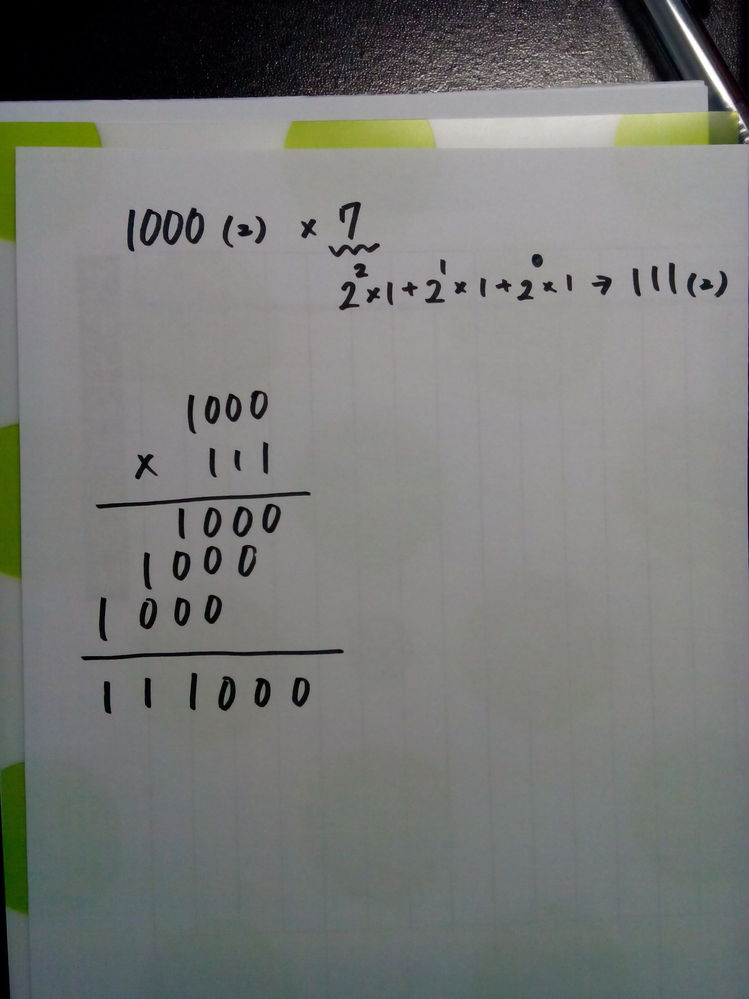 1000 (2) × 7
2² × 1 + 2¹ × 1 + 2⁰ × 1 → 111 (2)
1000
× 111
1000
1000
1000
111000